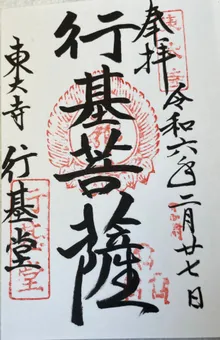 奉拝
令和六年二月廿七日
行基菩薩
東大寺
行基堂
行基堂